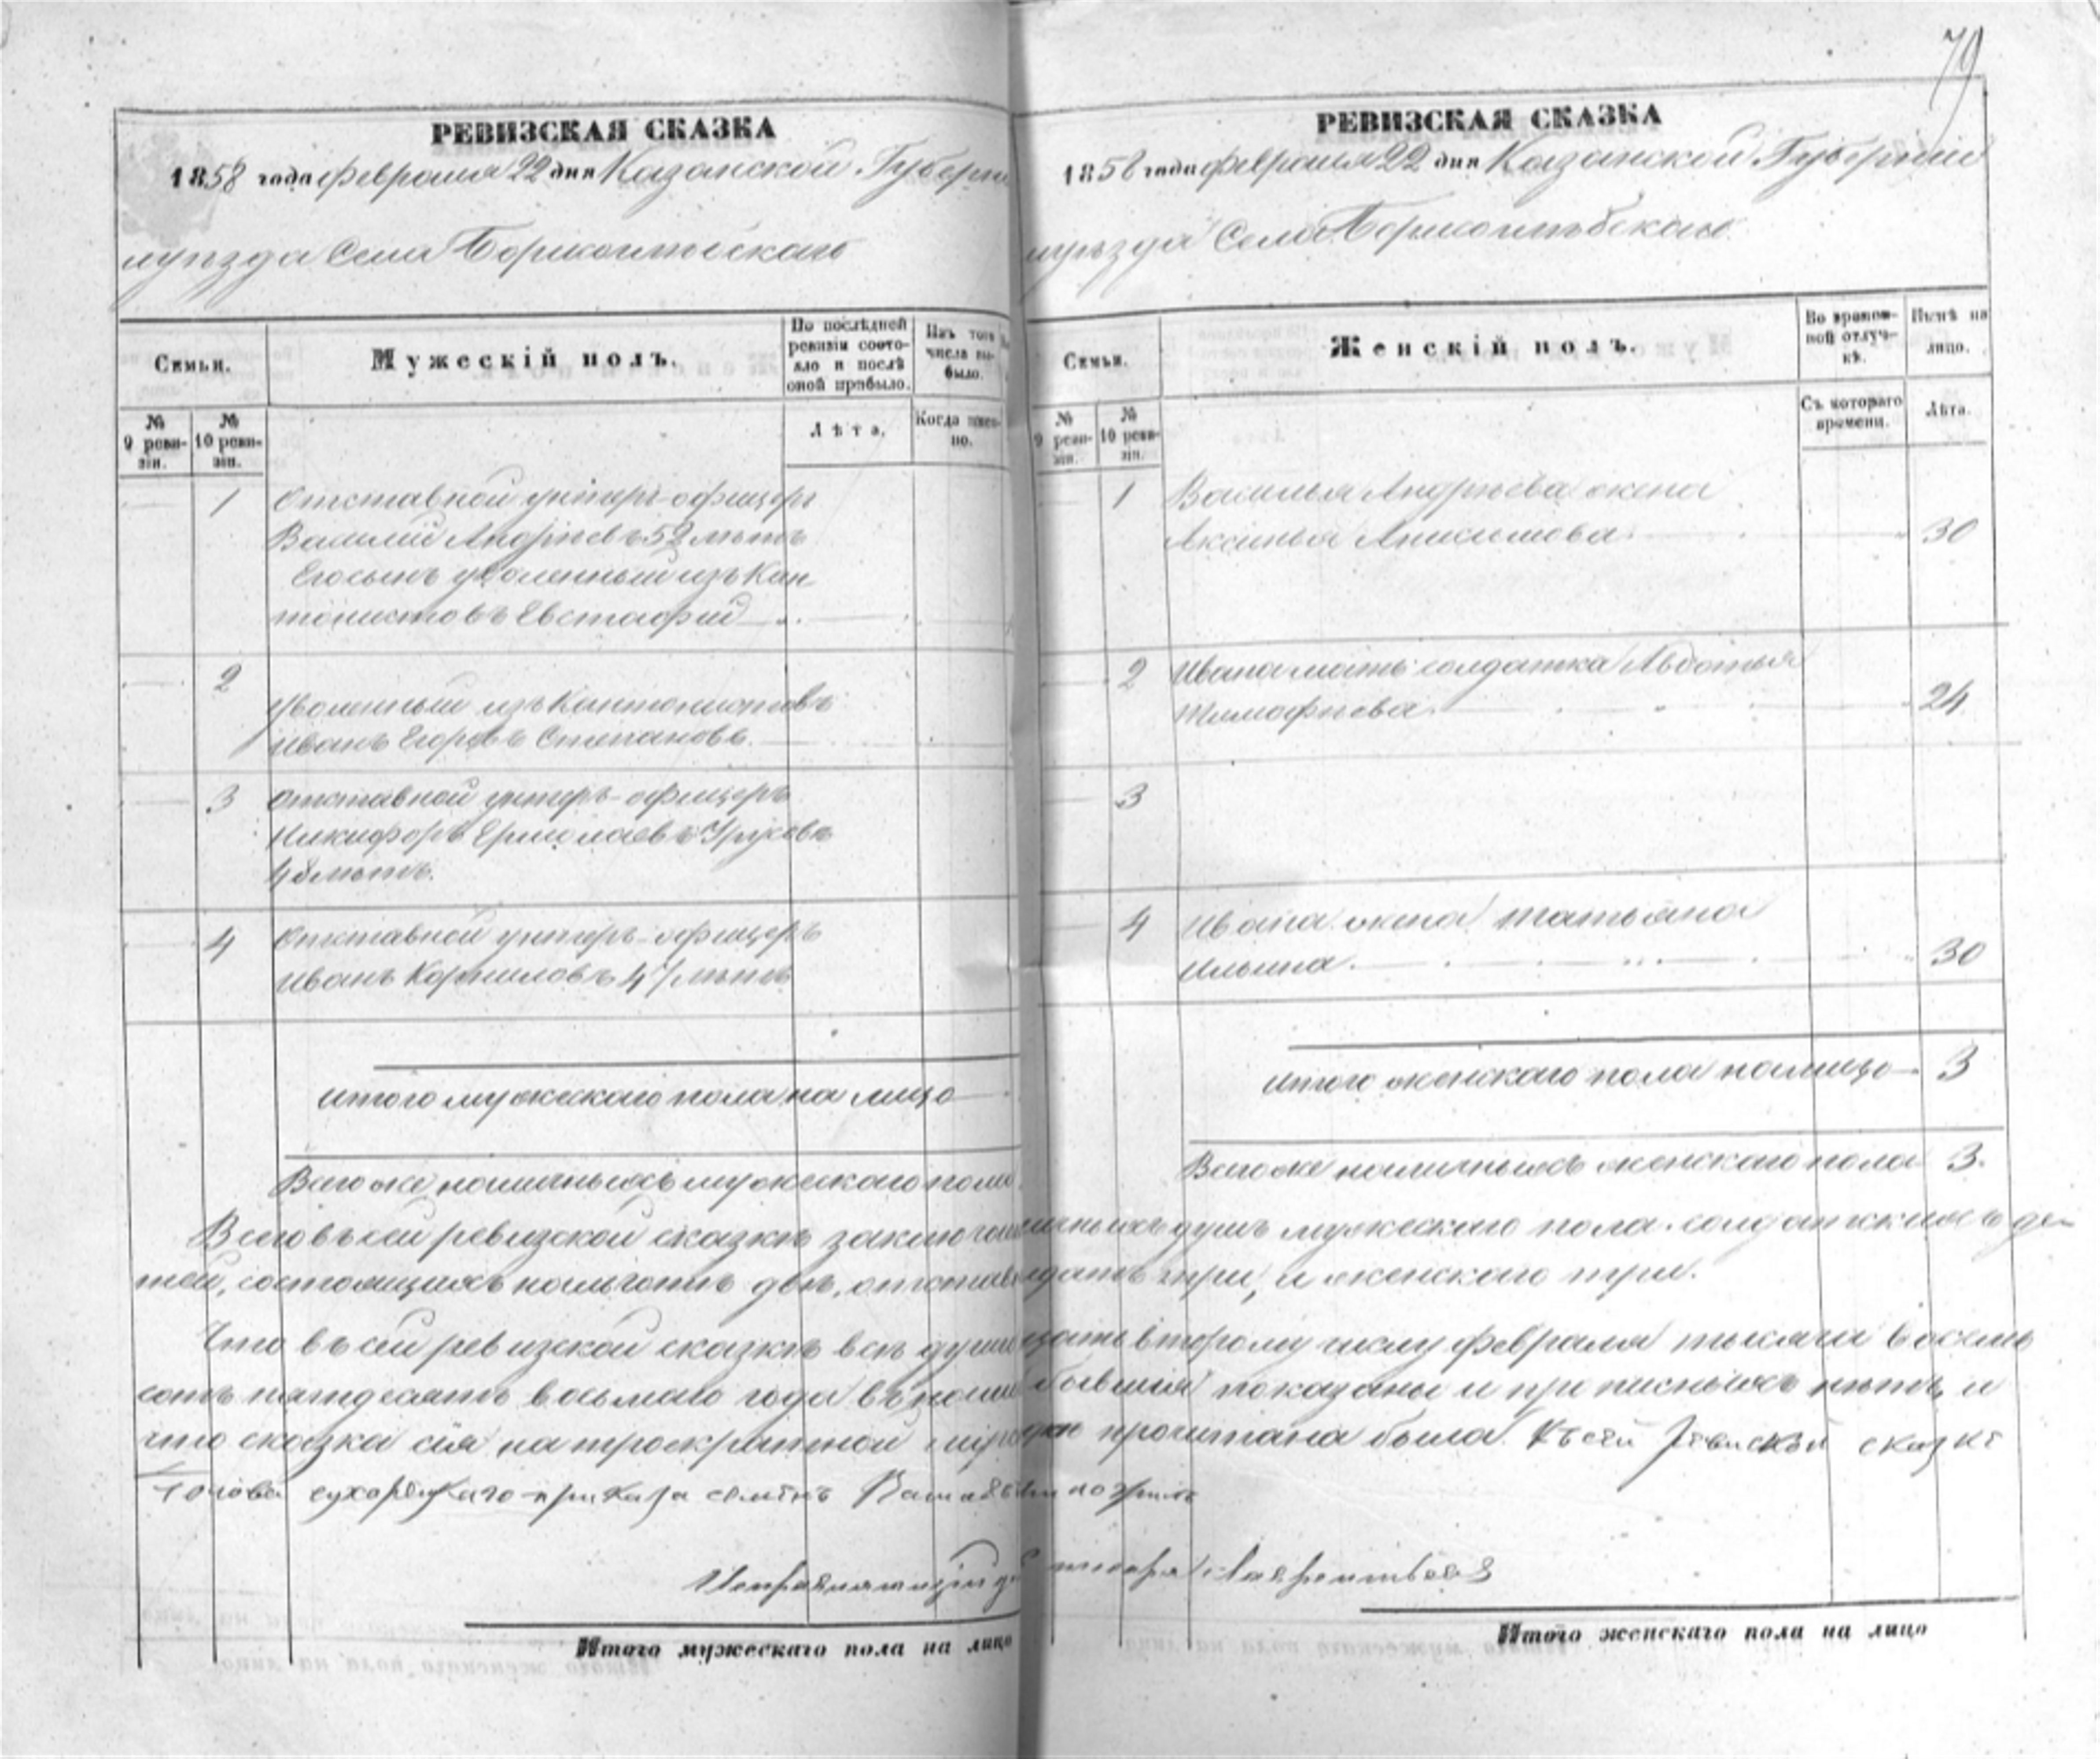 79
РЕВИЗСКАЯ СКАЗКА
1858 года февраля 22 дня Казанской Губерн
уѣзда Села
Семьи.
Мужескій полъ.
По послѣдней ревизіи состояло и послѣ оной прибыло.
Изъ того числа выбыло.
№ 9 ревизіи.
№ 10 ревизіи.
Лѣта.
Когда именно.
1 Отставной унтеръ-офицеръ
Василій Андреевъ 52 лѣтъ
Его сынъ уволенный изъ Кан-
тонистовъ Евстафий
2
Уволенный изъ Кантонистовъ
Иванъ Егоровъ Степановъ
3 Отставной унтеръ-офицеръ
Никифоръ Ермолаевъ
48 лѣтъ.
4 Отставной унтеръ-офицеръ
Иванъ Корниловъ 47 лѣтъ
итого мужескаго пола на лицо
Всего же наличныхъ мужескаго пола
РЕВИЗСКАЯ СКАЗКА
1858 года февраля 22 дня Казанской Губерніи
уѣзда Села
Семьи.
Женскій полъ.
Во временной отлучкѣ.
Нынѣ на лицо.
№ 9 ревизіи.
№ 10 ревизіи.
Съ котораго времени.
Лѣта.
1 Василья Андреева жена
Аксинья Анисимова 30
2 Ивана мать солдатка Авдотья
Тимофѣева 24
3
4 Ивана жена Татьяна
Ильина 30
итого женскаго пола налицо 3
Всего же наличныхъ женскаго пола 3.
Всего въ сей ревизской сказкѣ заключ личныхъ душъ мужескаго пола солдатскихъ де-
тей, состоящихъ на льготѣ двѣ, отстав три, и женскаго три.
Что въ сей ревизской сказкѣ всѣ души второму числу февраля тысяча восемь
сотъ пятдесятъ восьмаго года въ бывшія показаны и прописныхъ нѣтъ, и
что сказка сія на троекратной прочитана была. Къ сей ревиской сказкѣ
Голова приказа Семенъ
Итого мужескаго пола на лицо
Итого женскаго пола на лицо